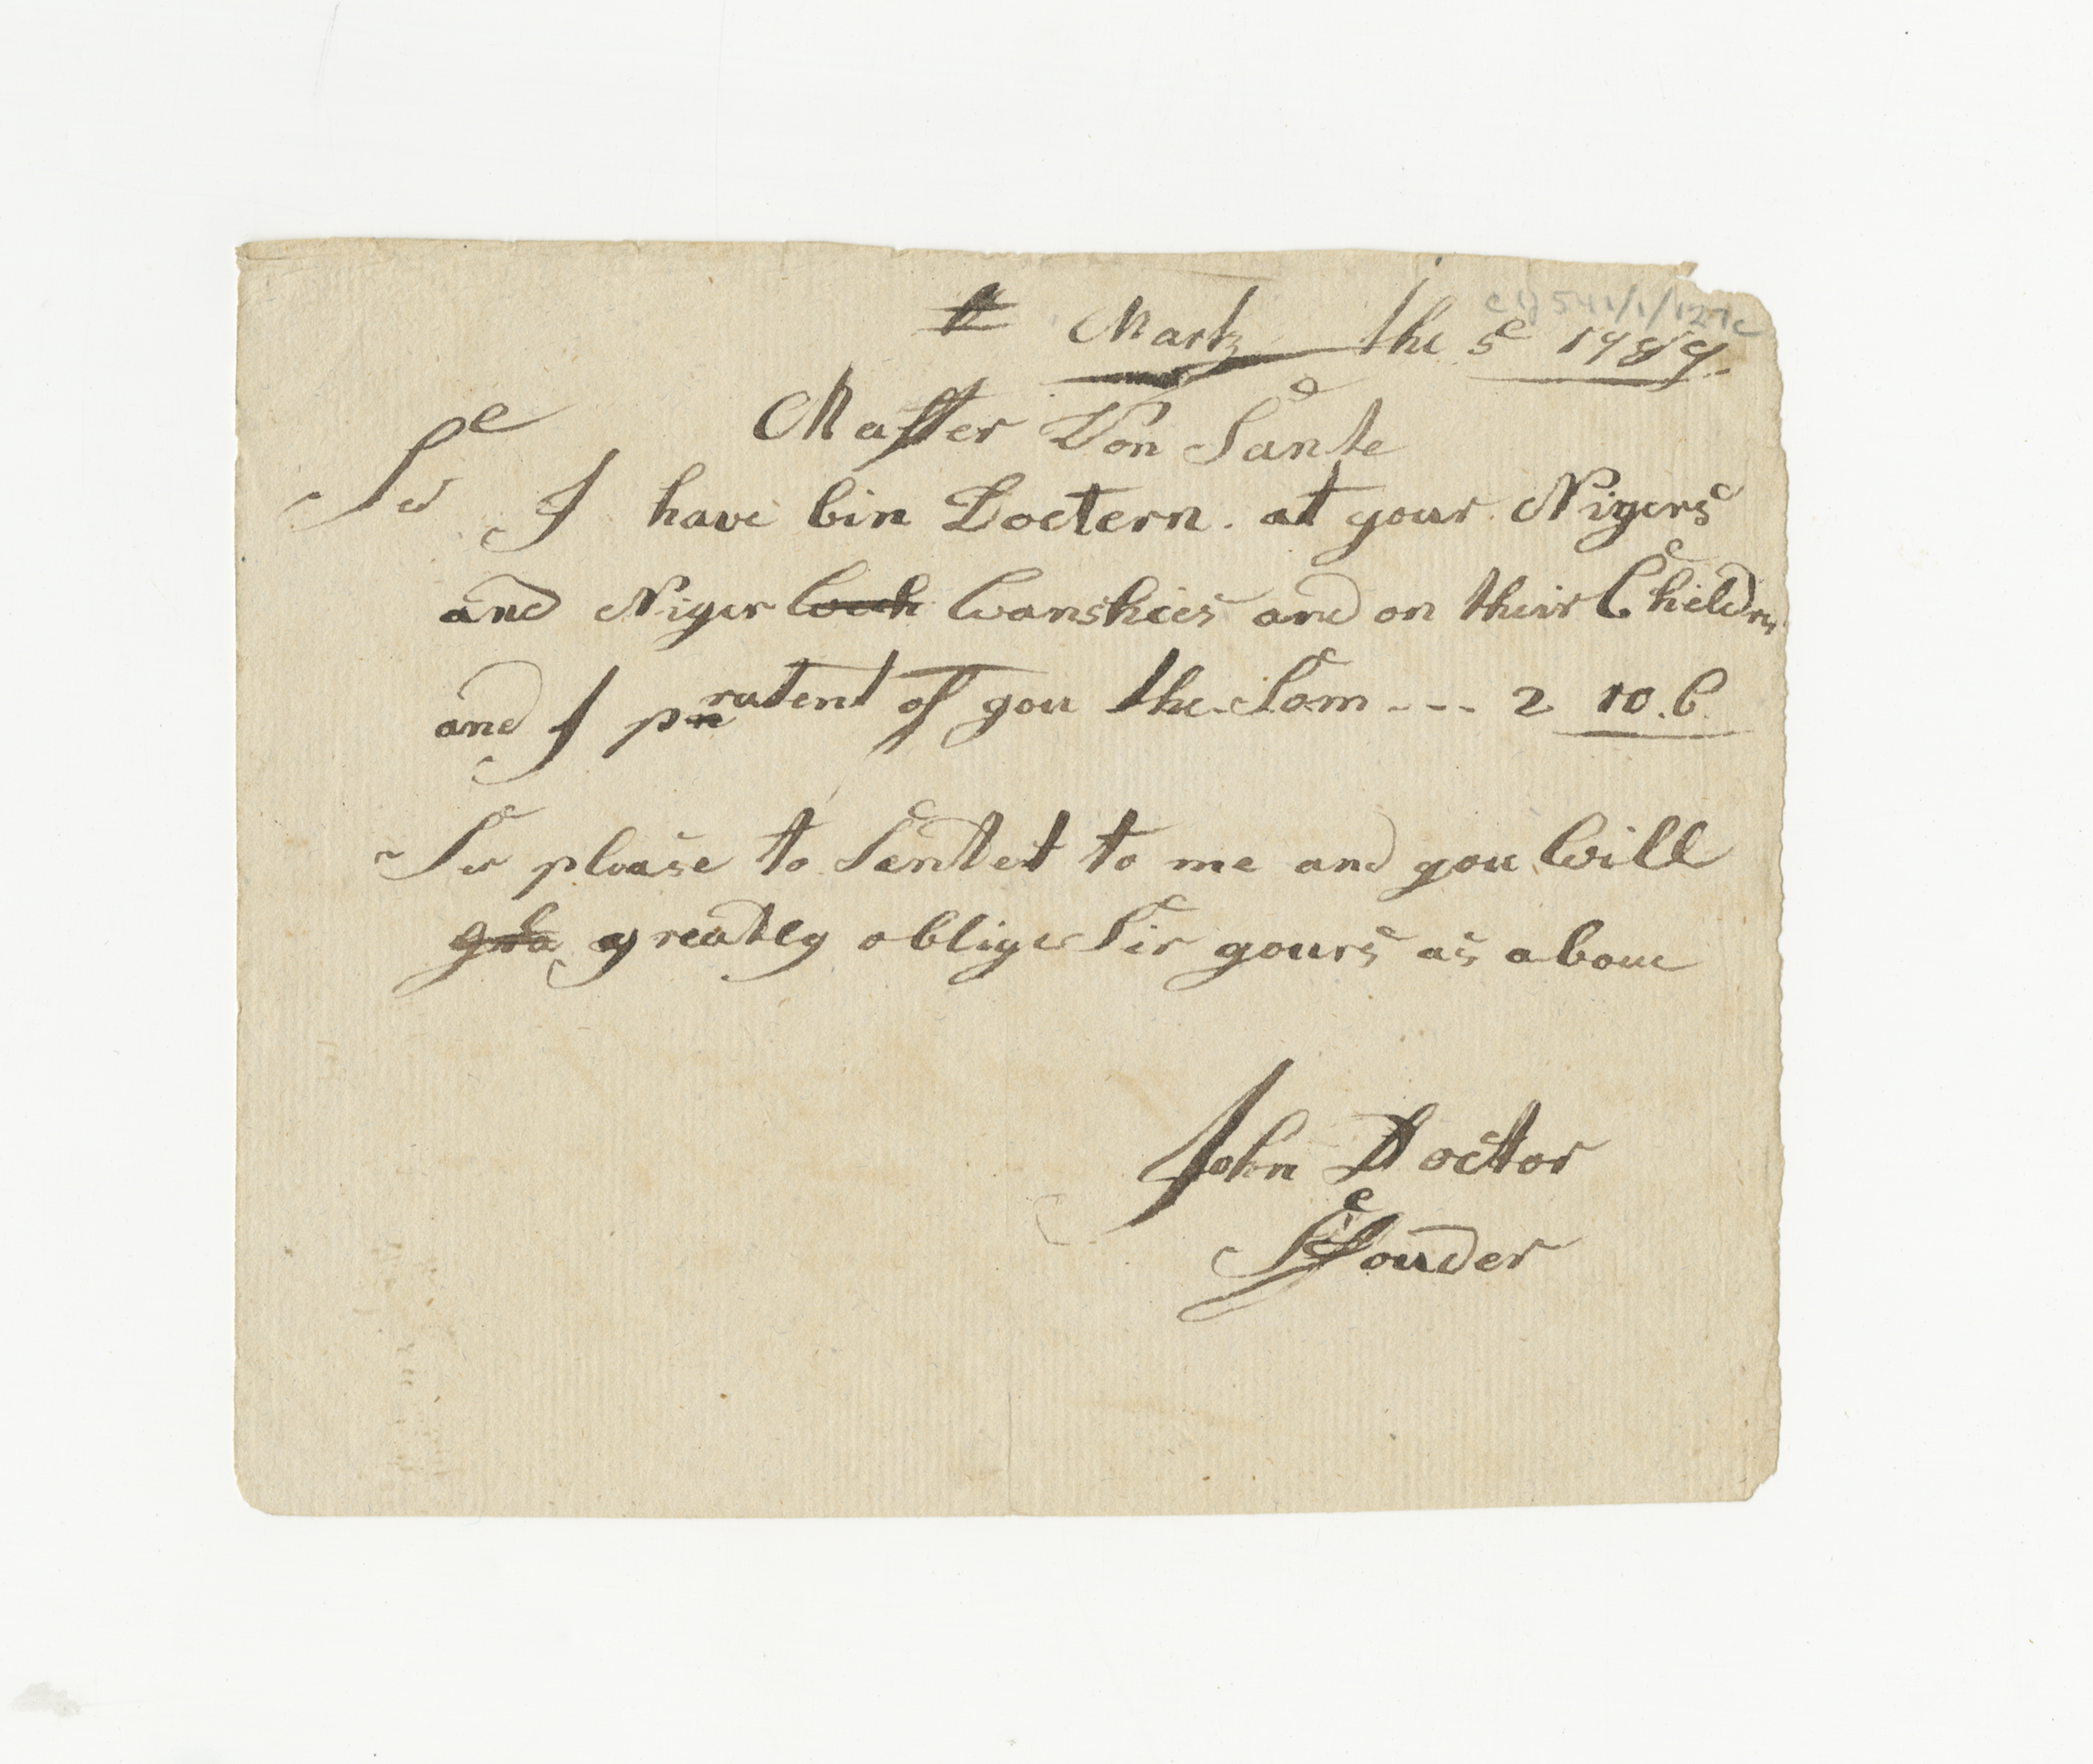 Martz the 5 1789.
Master Von Sante
Sir I have bin Doctern. at your Nigers
and Niger Wanshies and on their Childrn
and I pratent of you the Som --- 2 10.C.
Sir please to Sentet to me and you Will
greatly oblige Sir yours as aboue
John Doctor
Souder